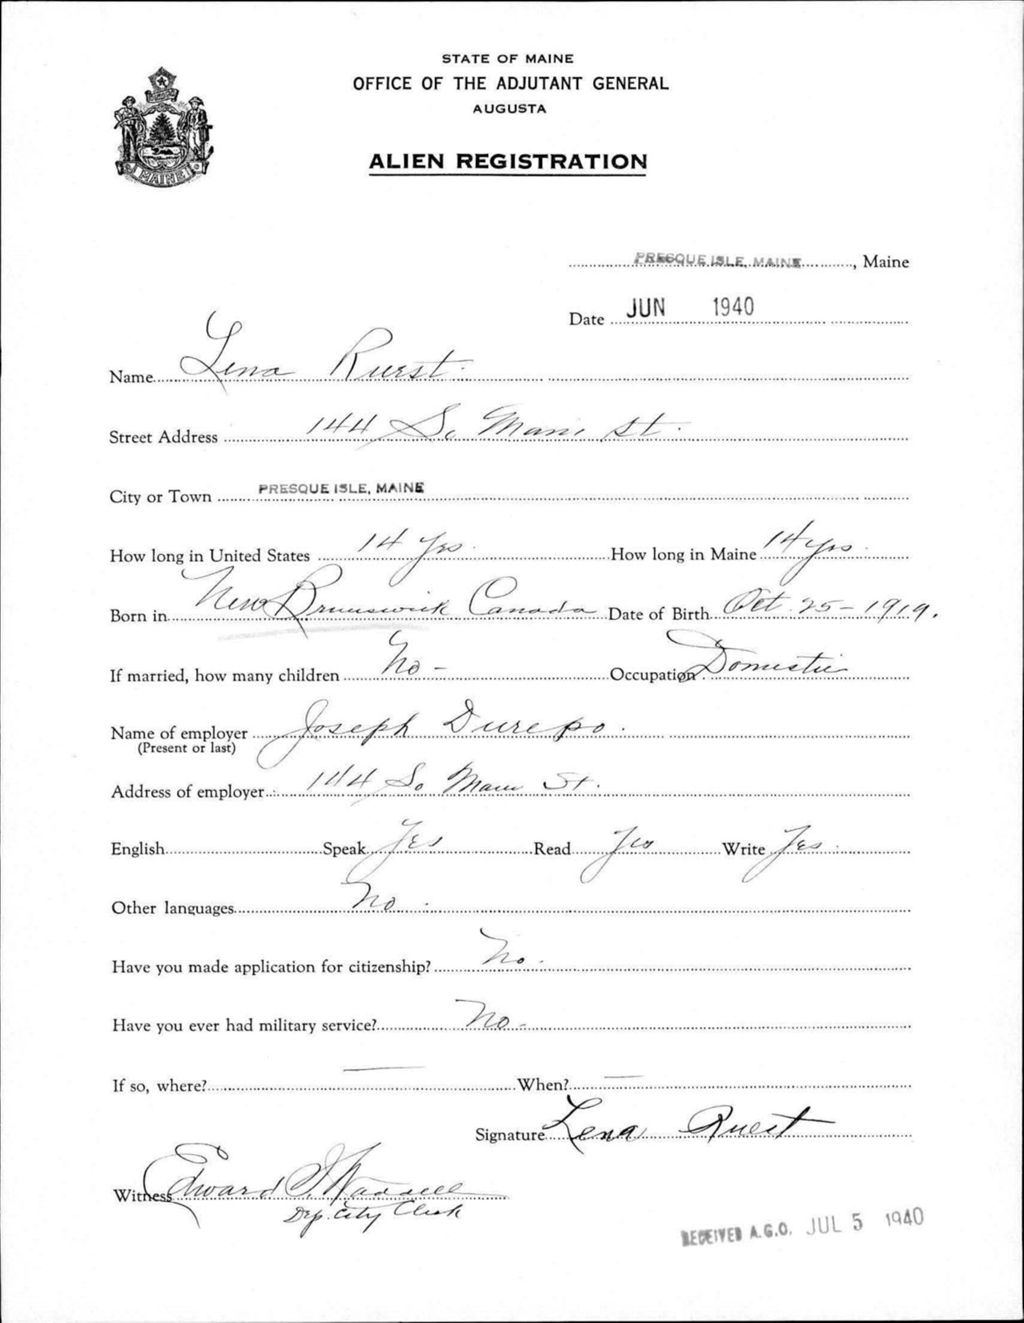 STATE OF MAINE
OFFICE OF THE ADJUTANT GENERAL
AUGUSTA
ALIEN REGISTRATION
MAINE
PRESQUE ISLE, MAINE, Maine
Date JUN 1940
Name Lena Ruest.
Street Address 144 So Main St.
City or Town PRESQUE ISLE, MAINE
How long in United States 14 yrs. How long in Maine 14 yrs.
Born in New Brunswick Canada Date of Birth Oct. 25 - 1919.
If married, how many children No - Occupation Domestic
Name of employer Joseph Durepo.
(Present or last)
Address of employer 144 So Main St.
English Speak Yes Read Yes Write Yes.
Other languages No.
Have you made application for citizenship? No.
Have you ever had military service? No -
If so, where? — When? —
Signature Lena Ruest
Witness Edward Waddell
Dep. City Clerk
RECEIVED A.G.O. JUL 5 1940